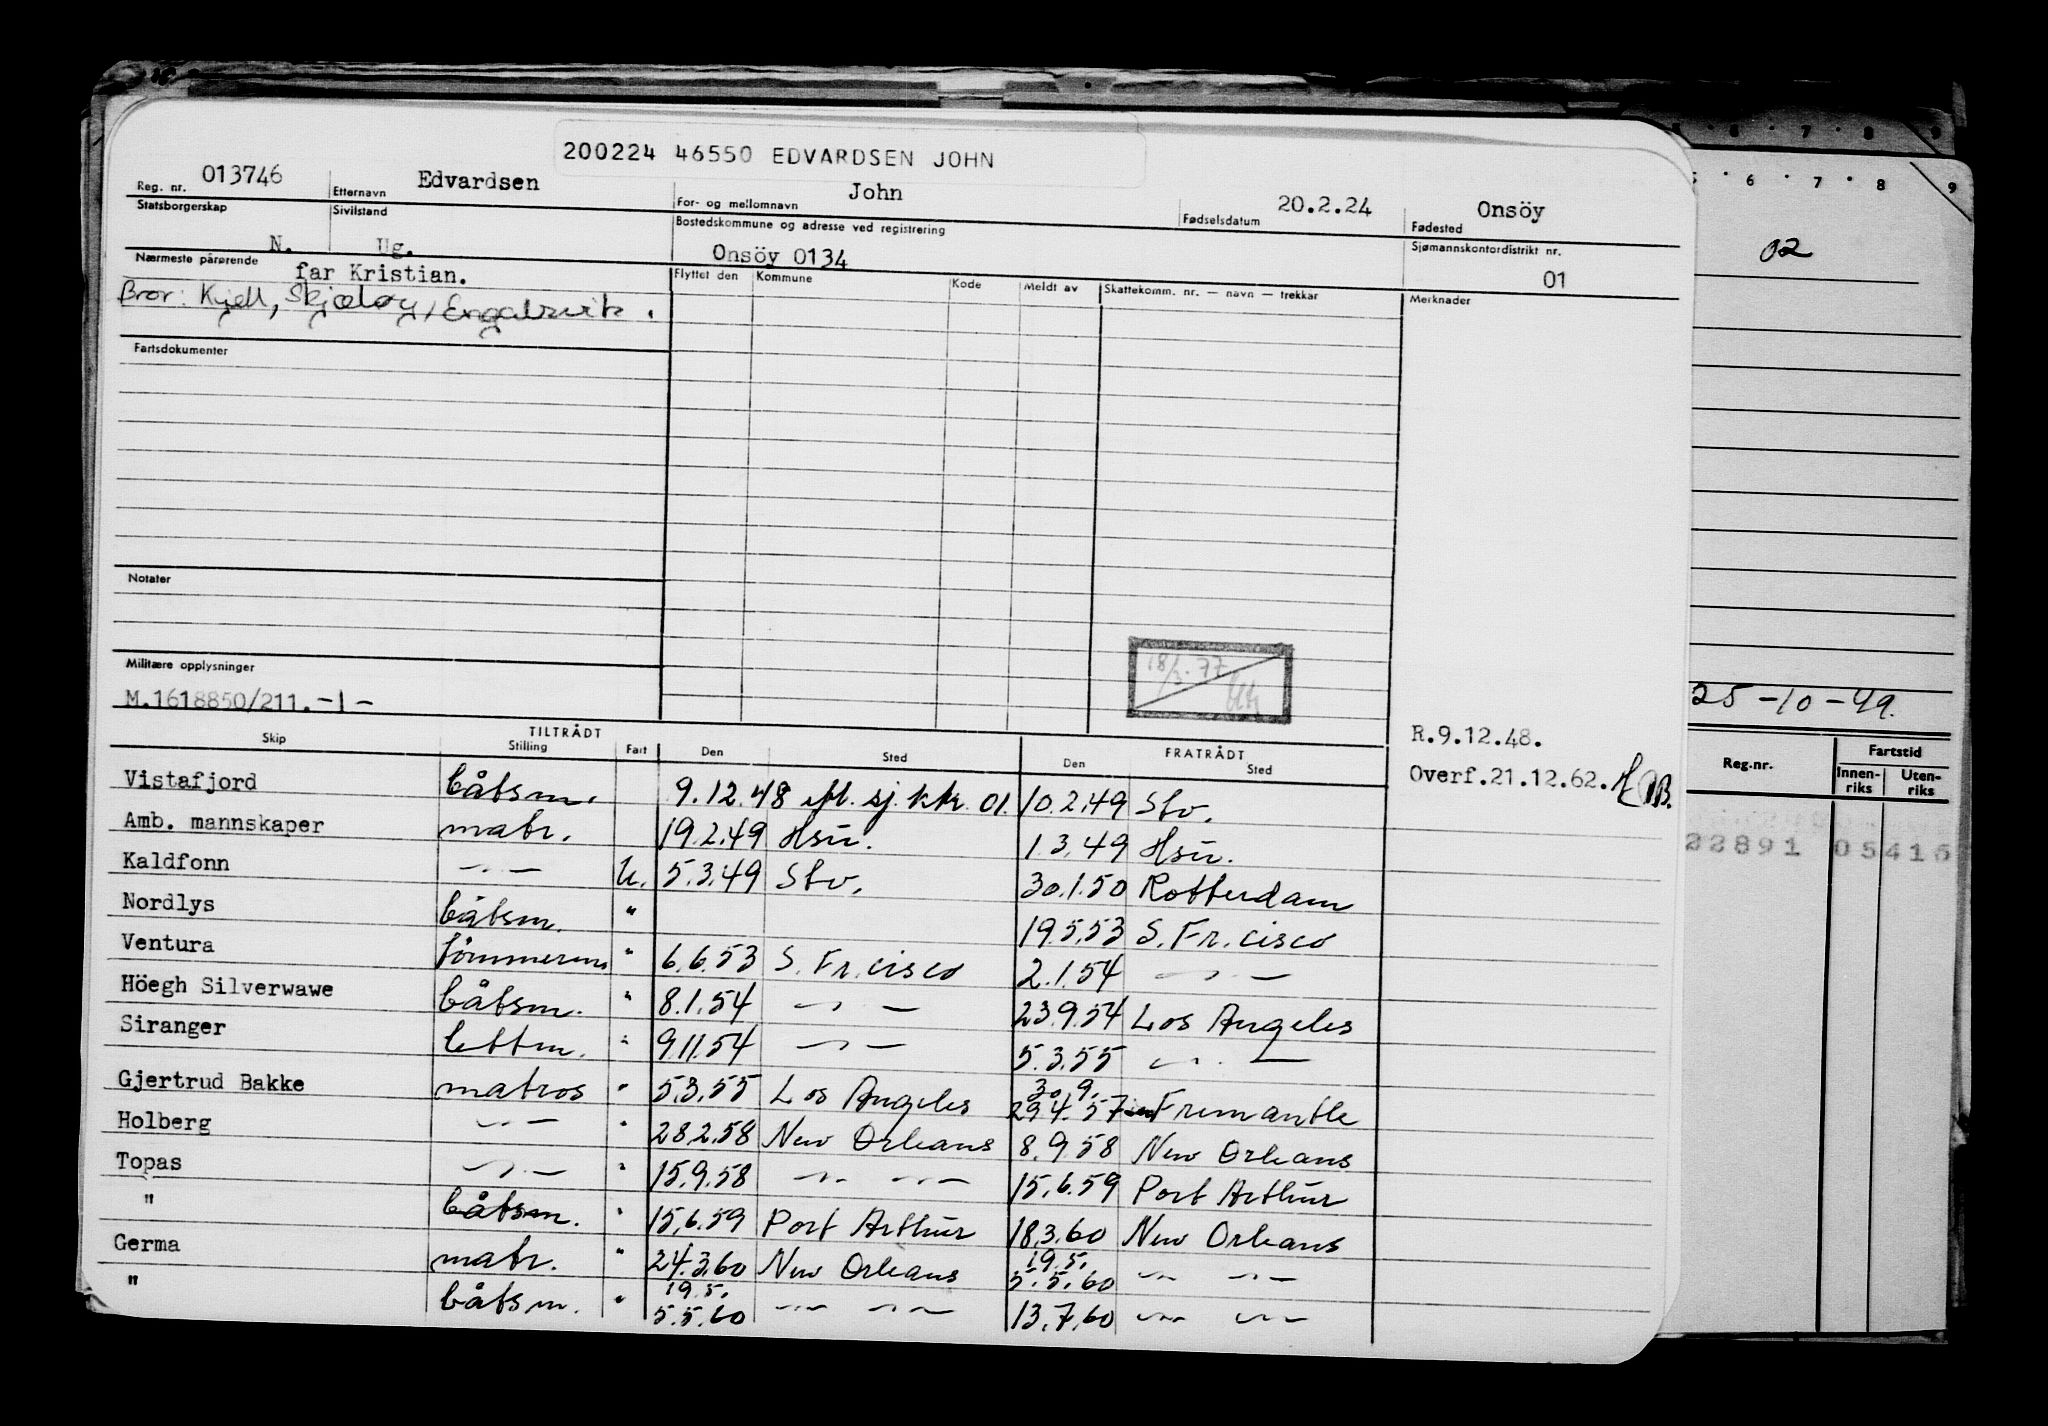 200224 46550 EDVARDSEN JOHN
Reg. nr. 013746 Etternavn Edvardsen For- og mellomnavn John Fødselsdatum 20.2.24 Fødested Onsöy
Statsborgerskap N. Sivilstand Ug. Bostedskommune og adresse ved registrering Onsöy 0134 Sjømannskontordistrikt nr. 01
Nærmeste pårørende far Kristian.
Bror: Kjell, Skjæløy, Engalsvik.
Flyttet den Kommune Kode Meldt av Skattekomm. nr. — navn — trekkar Merknader
Fartsdokumenter
Notater
18/3.77
Militære opplysninger
M.1618850/211.-1-
R.9.12.48.
Overf.21.12.62.
TILTRÅDT FRATRÅDT
Skip Stilling Fart Den Sted Den Sted
Vistafjord båtsm. 9.12.48 ifl. sj. kktr. 01. 10.2.49 Stv.
Amb. mannskaper matr. 19.2.49 Hsu. 1.3.49 Hsu.
Kaldfonn -"- U. 5.3.49 Stv. 30.1.50 Rotterdam
Nordlys båtsm. " 19.5.53 S. Fr.cisco
Ventura tömmerm " 6.6.53 S. Fr.cisco 2.1.54 -"-
Höegh Silverwawe båtsm. " 8.1.54 -"- 23.9.54 Los Angeles
Siranger lettm. " 9.11.54 -"- 5.3.55 -"-
Gjertrud Bakke matros " 5.3.55 Los Angeles 30.9. 29.4.57 Fremantle
Holberg -"- " 28.2.58 New Orleans 8.9.58 New Orleans
Topas -"- " 15.9.58 -"- -"- 15.6.59 Port Arthur
" båtsm. " 15.6.59 Port Arthur 18.3.60 New Orleans
Germa matr. " 24.3.60 New Orleans 19.5. 5.5.60 -"- -"-
" båtsm. " 19.5. 5.5.60 -"- -"- 13.7.60 -"- -"-
6 7 8 9
5 6 7 8 9
02
25-10-49.
Reg.nr. Fartstid
Innenriks Utenriks
22891 05416